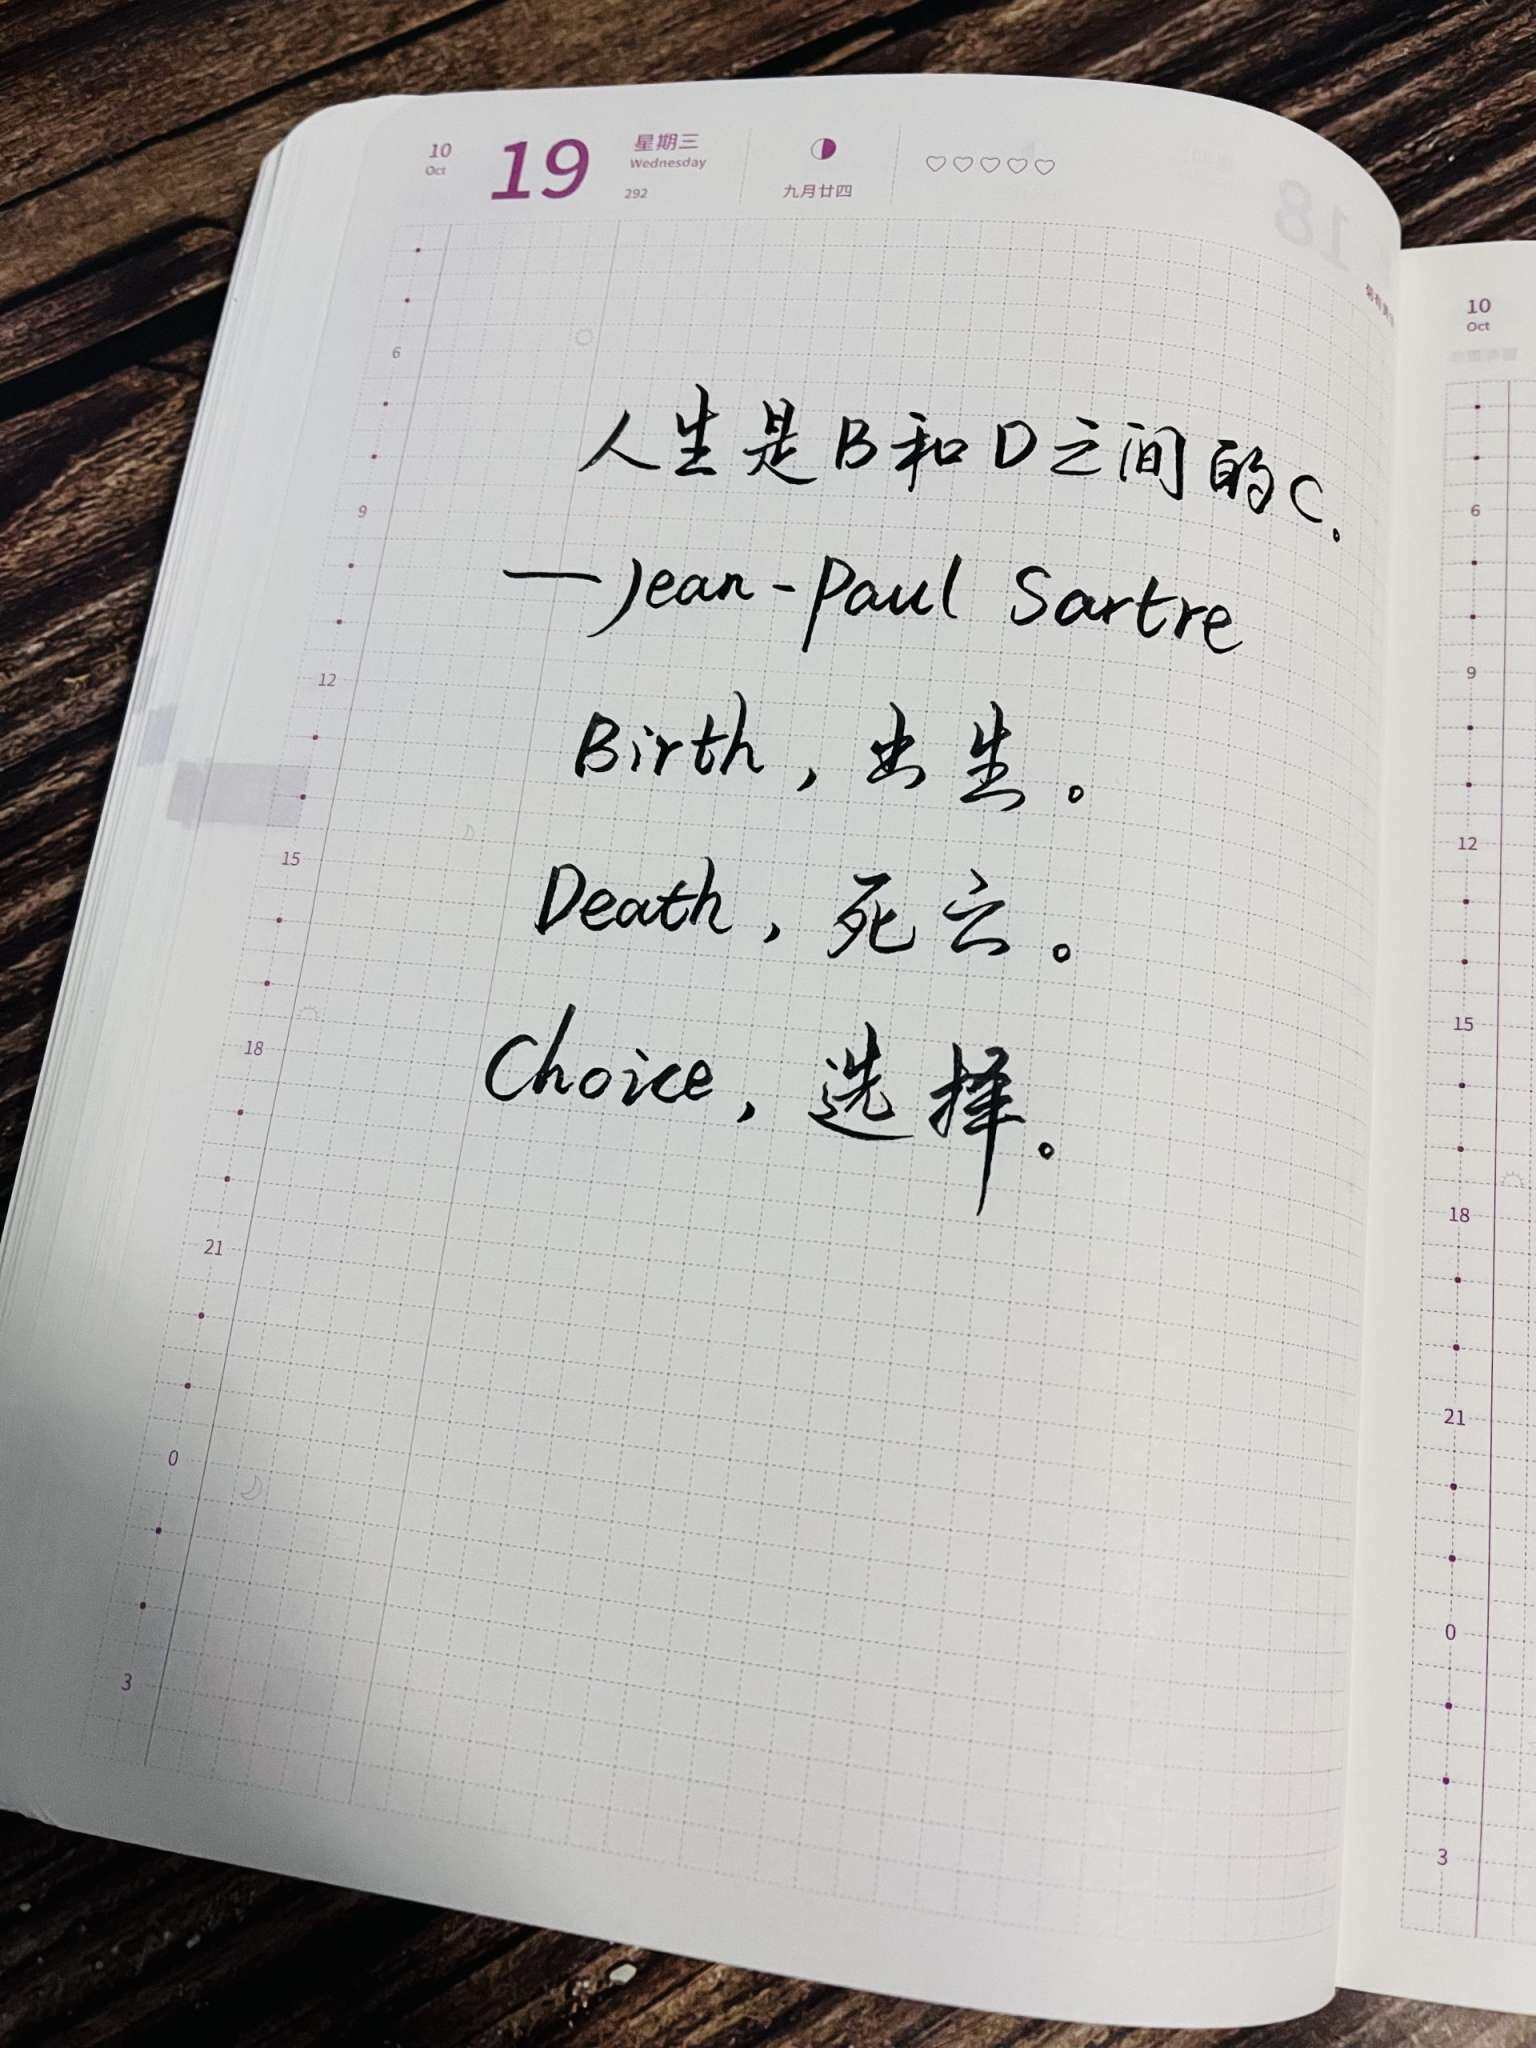 10 Oct 19 星期三 Wednesday 292 九月廿四
18
人生是B和D之间的C.
—Jean-Paul Sartre
Birth,出生。
Death,死亡。
Choice,选择。
6
9
12
15
18
21
0
3
10
Oct
6
9
12
15
18
21
0
3